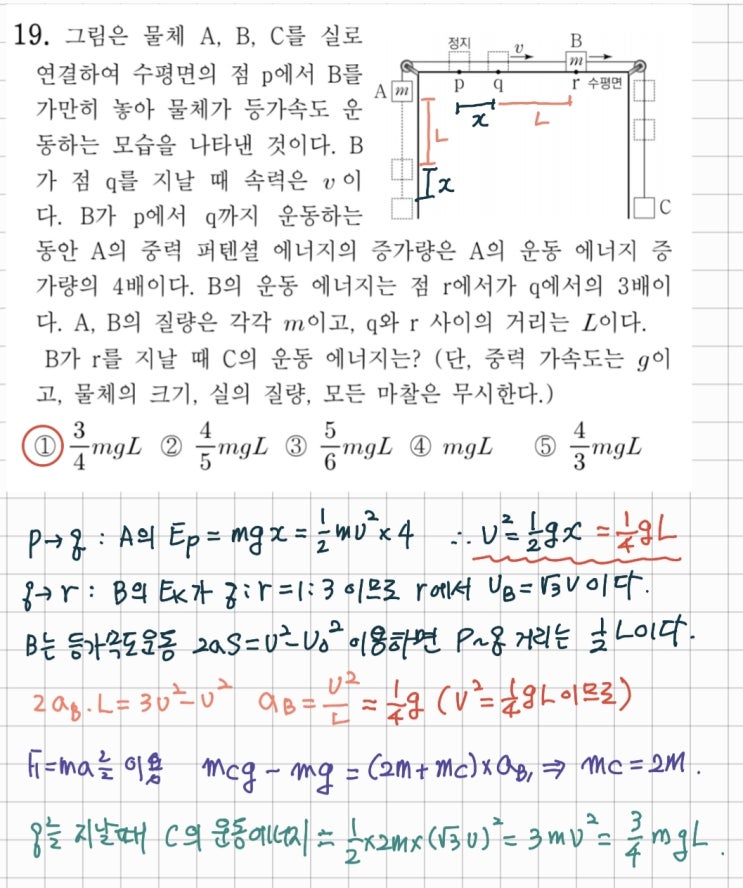 19. 그림은 물체 A, B, C를 실로
연결하여 수평면의 점 p에서 B를
가만히 놓아 물체가 등가속도 운
동하는 모습을 나타낸 것이다. B
가 점 q를 지날 때 속력은 v이
다. B가 p에서 q까지 운동하는
정지 v B
m
A m p q r 수평면
x L
L
x
C
동안 A의 중력 퍼텐셜 에너지의 증가량은 A의 운동 에너지 증
가량의 4배이다. B의 운동 에너지는 점 r에서가 q에서의 3배이
다. A, B의 질량은 각각 m이고, q와 r 사이의 거리는 L이다.
B가 r를 지날 때 C의 운동 에너지는? (단, 중력 가속도는 g이
고, 물체의 크기, 실의 질량, 모든 마찰은 무시한다.)
① 3/4 mgL ② 4/5 mgL ③ 5/6 mgL ④ mgL ⑤ 4/3 mgL
P→q : A의 Ep = mgx = 1/2 mv² × 4 ∴ v² = 1/2 gx = 1/4 gL
q→r : B의 Ek가 q:r = 1:3 이므로 r에서 UB = √3 v 이다.
B는 등가속도운동 2aS = v² - v₀² 이용하면 P~q 거리는 1/2 L이다.
2aB·L = 3v² - v² aB = v²/L = 1/4 g (v² = 1/4 gL이므로)
F=ma를 이용 mcg - mg = (2m + mc) × aB, ⇒ mc = 2M.
을 지날때 C의 운동에너지 = 1/2 × 2m × (√3 v)² = 3mv² = 3/4 mgL.